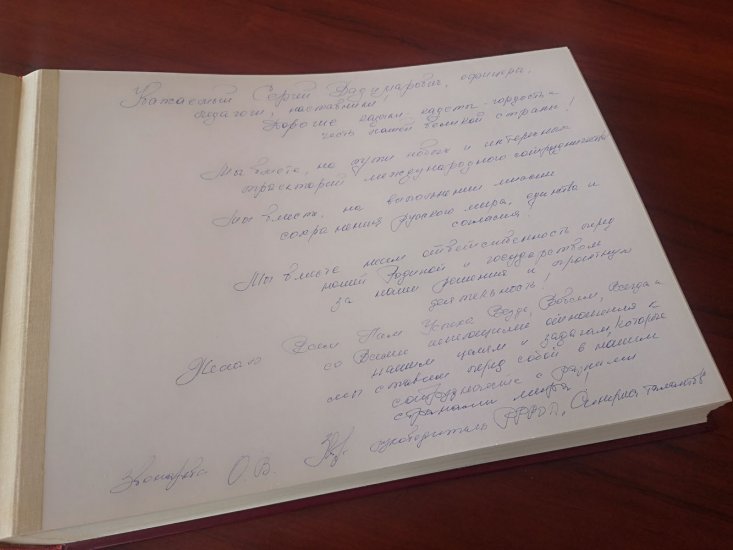 Уважаемый Сергей Владимирович, офицеры,
педагоги, наставники,
Дорогие наши кадеты - гордость и
честь нашей великой страны!
Мы вместе, на пути новых и интересных
траекторий международного сотрудничества
Мы вместе, на выполнении миссии
сохранения Русского мира, единства и
согласия!
Мы вместе несем ответственность перед
нашей Родиной и государством
за наши решения и проектную
деятельность!
Желаю Всем Нам Успеха Везде, Во всем, Всегда и
со Всеми имеющими отношения к
нашим целям и задачам, которые
мы ставим перед собой в нашем
сотрудничестве с разными
странами мира!
О.В. руководитель